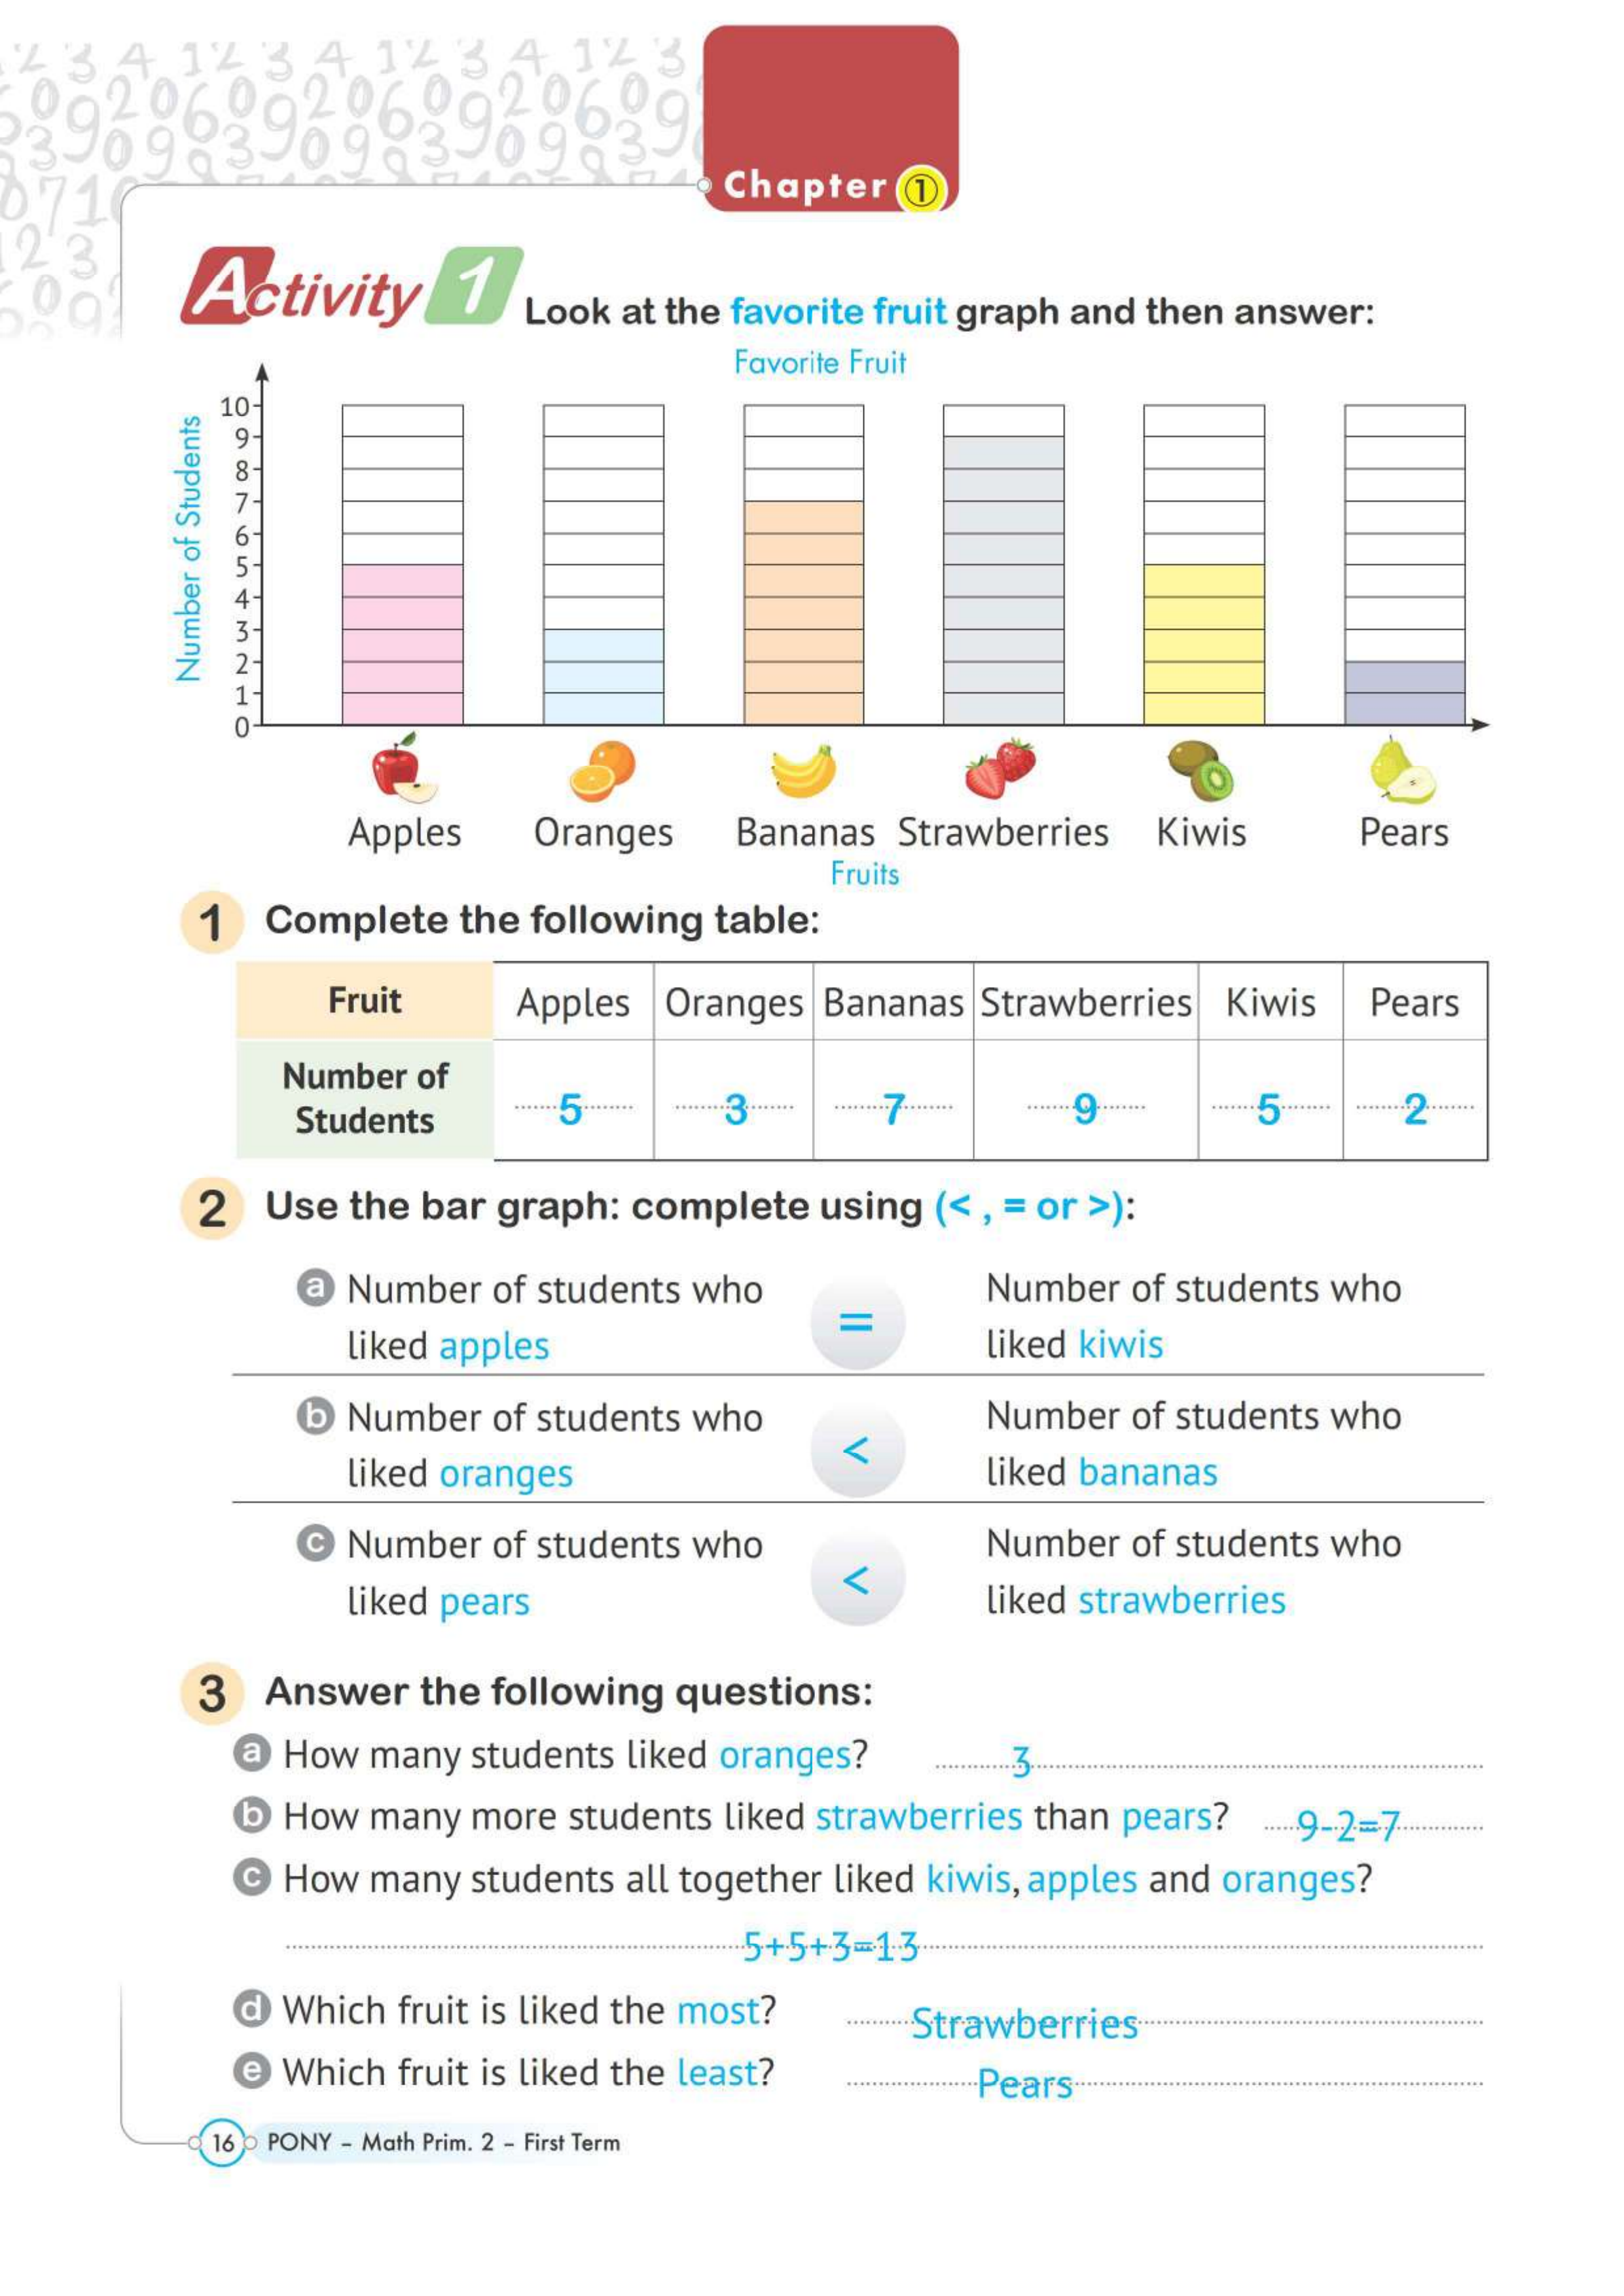 Chapter 1
Activity 1 Look at the favorite fruit graph and then answer:
Favorite Fruit
Number of Students
10
9
8
7
6
5
4
3
2
1
0
Apples Oranges Bananas Strawberries Kiwis Pears
Fruits
1 Complete the following table:
Fruit Apples Oranges Bananas Strawberries Kiwis Pears
Number of Students 5 3 7 9 5 2
2 Use the bar graph: complete using (< , = or >):
a Number of students who = Number of students who
liked apples liked kiwis
b Number of students who < Number of students who
liked oranges liked bananas
c Number of students who < Number of students who
liked pears liked strawberries
3 Answer the following questions:
a How many students liked oranges? 3
b How many more students liked strawberries than pears? 9-2=7
c How many students all together liked kiwis, apples and oranges?
5+5+3=13
d Which fruit is liked the most? Strawberries
e Which fruit is liked the least? Pears
16 PONY - Math Prim. 2 - First Term